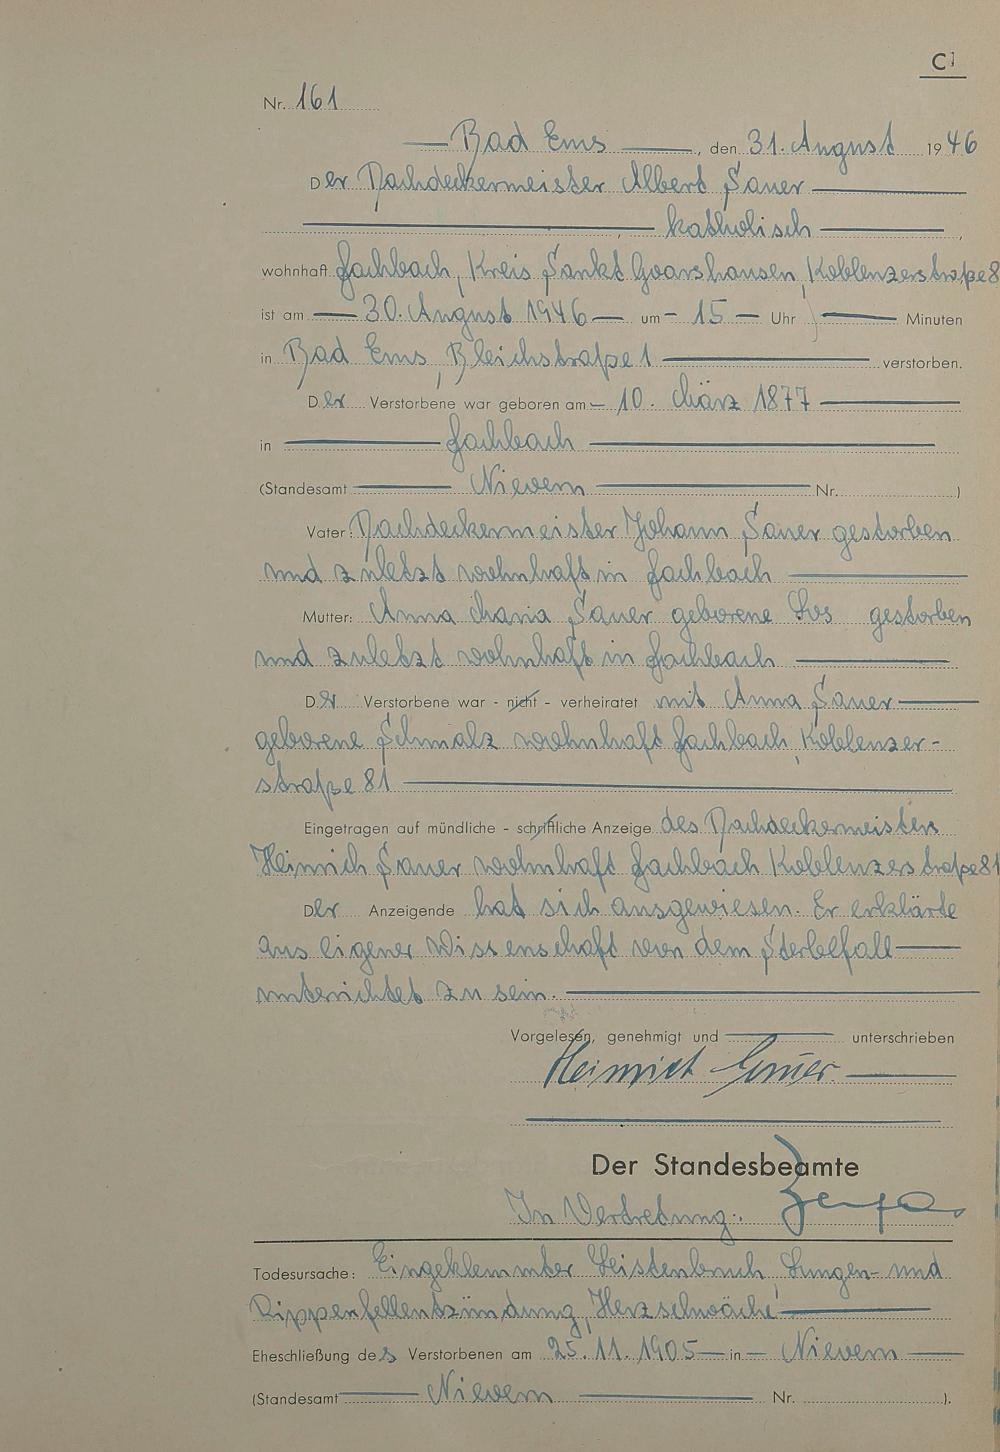 C1
Nr. 161
Bad Ems, den 31. August 1946
Der Dachdeckermeister Albert Sauer
katholisch,
wohnhaft Fachbach, Kreis Sankt Goarshausen, Koblenzerstraße 8
ist am 30. August 1946 um 15 Uhr Minuten
in Bad Ems, Bleichstraße 1 verstorben.
Der Verstorbene war geboren am 10. März 1877
in Fachbach
(Standesamt Nievern Nr. )
Vater: Dachdeckermeister Johann Sauer gestorben
und zuletzt wohnhaft in Fachbach
Mutter: Anna Maria Sauer geborene Los gestorben
und zuletzt wohnhaft in Fachbach
Der Verstorbene war - nicht - verheiratet mit Anna Sauer
geborene Schmalz wohnhaft Fachbach, Koblenzer-
straße 81
Eingetragen auf mündliche - schriftliche Anzeige des Dachdeckermeisters
Heinrich Sauer wohnhaft Fachbach Koblenzerstraße 81
Der Anzeigende hat sich ausgewiesen. Er erklärte
aus eigener Wissenschaft von dem Sterbefall
unterrichtet zu sein.
Vorgelesen, genehmigt und unterschrieben
Heinrich Sauer
Der Standesbeamte
In Vertretung:
Todesursache: Eingeklemmter Leistenbruch, Lungen- und
Rippenfellentzündung, Herzschwäche
Eheschließung des Verstorbenen am 25.11.1905 in Nievern
(Standesamt Nievern Nr. ).